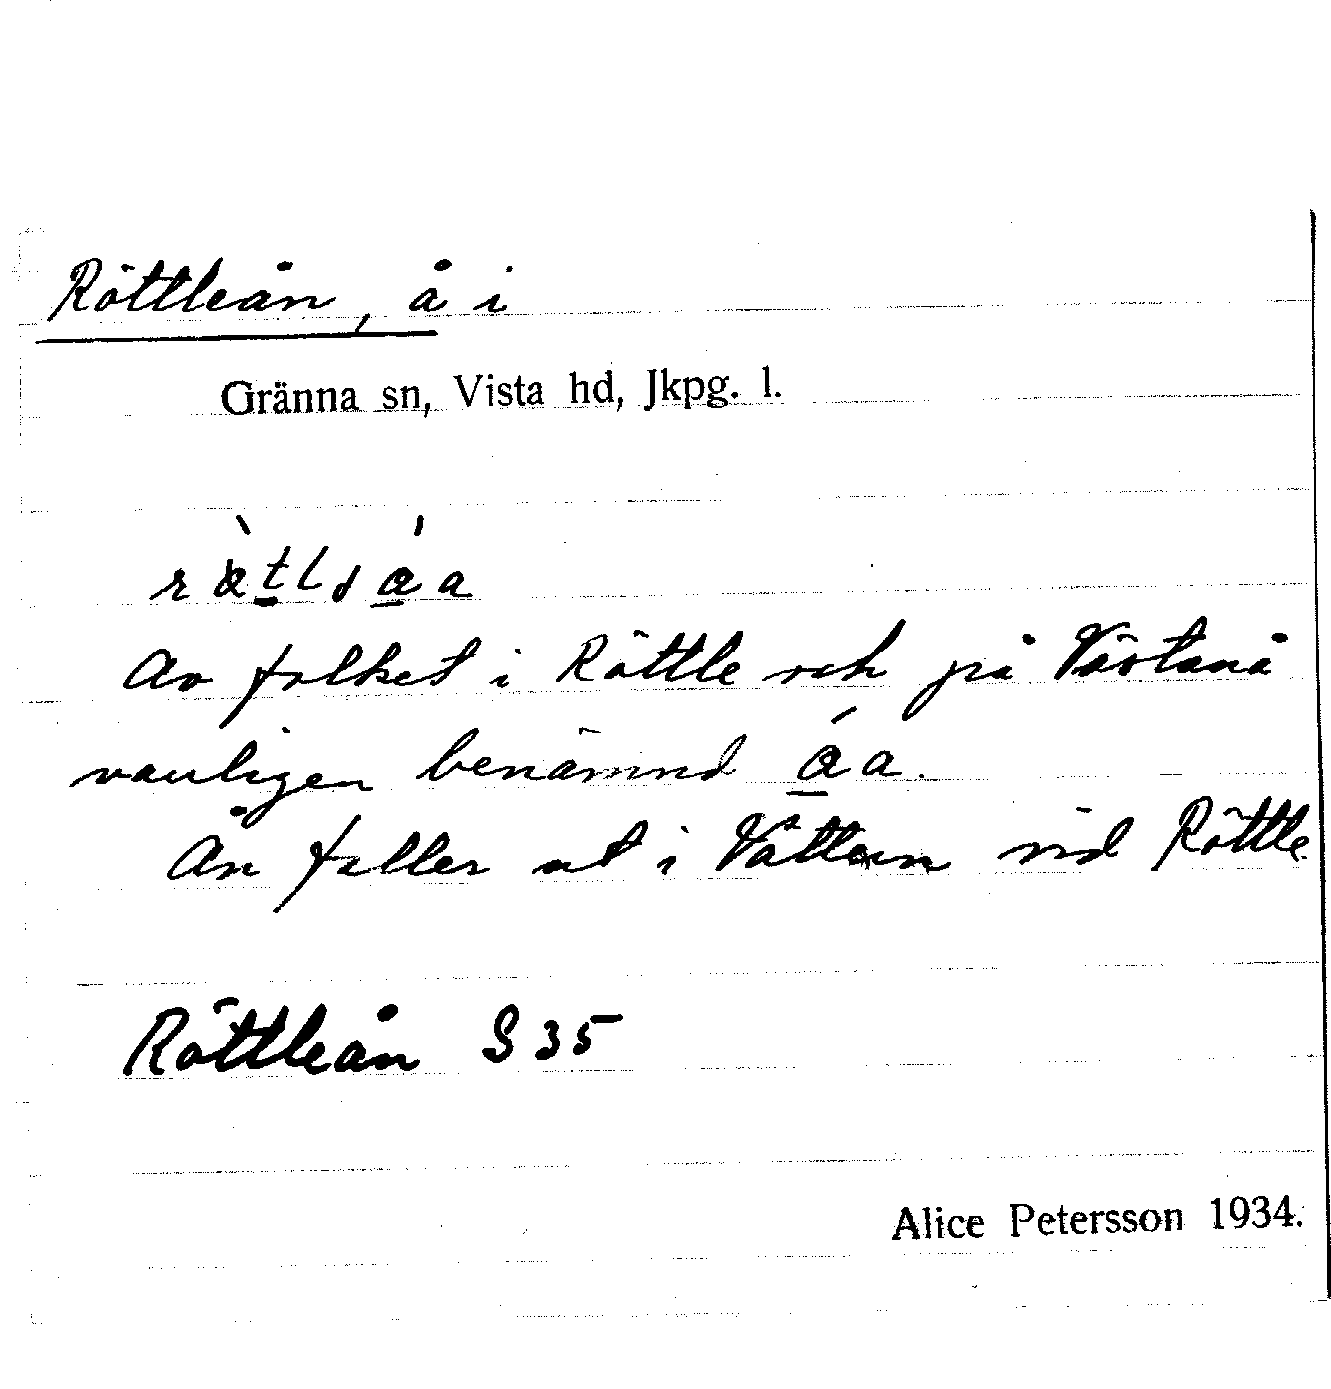 Röttleån, å i
Gränna sn, Vista hd, Jkpg. l.
Av folket i Röttle och på Västanå
vanligen benämnd áa.
Ån faller ut i Vättern vid Röttle.
Röttleån S 35
Alice Petersson 1934.